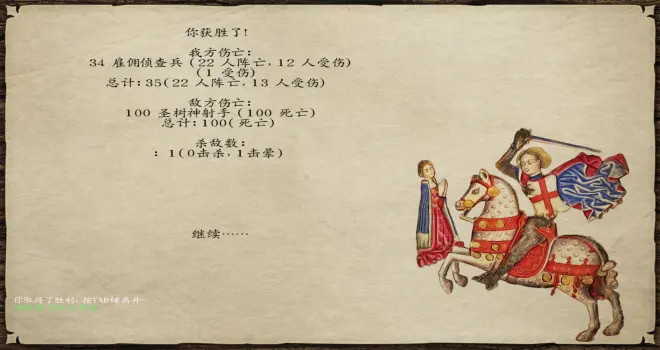 你获胜了!
我方伤亡:
34 雇佣侦查兵 (22 人阵亡, 12 人受伤)
(1 受伤)
总计: 35(22 人阵亡, 13 人受伤)
敌方伤亡:
100 圣树神射手 (100 死亡)
总计: 100(死亡)
杀敌数:
: 1(0击杀, 1击晕)
继续……
你取得了胜利, 按TAB键离开……